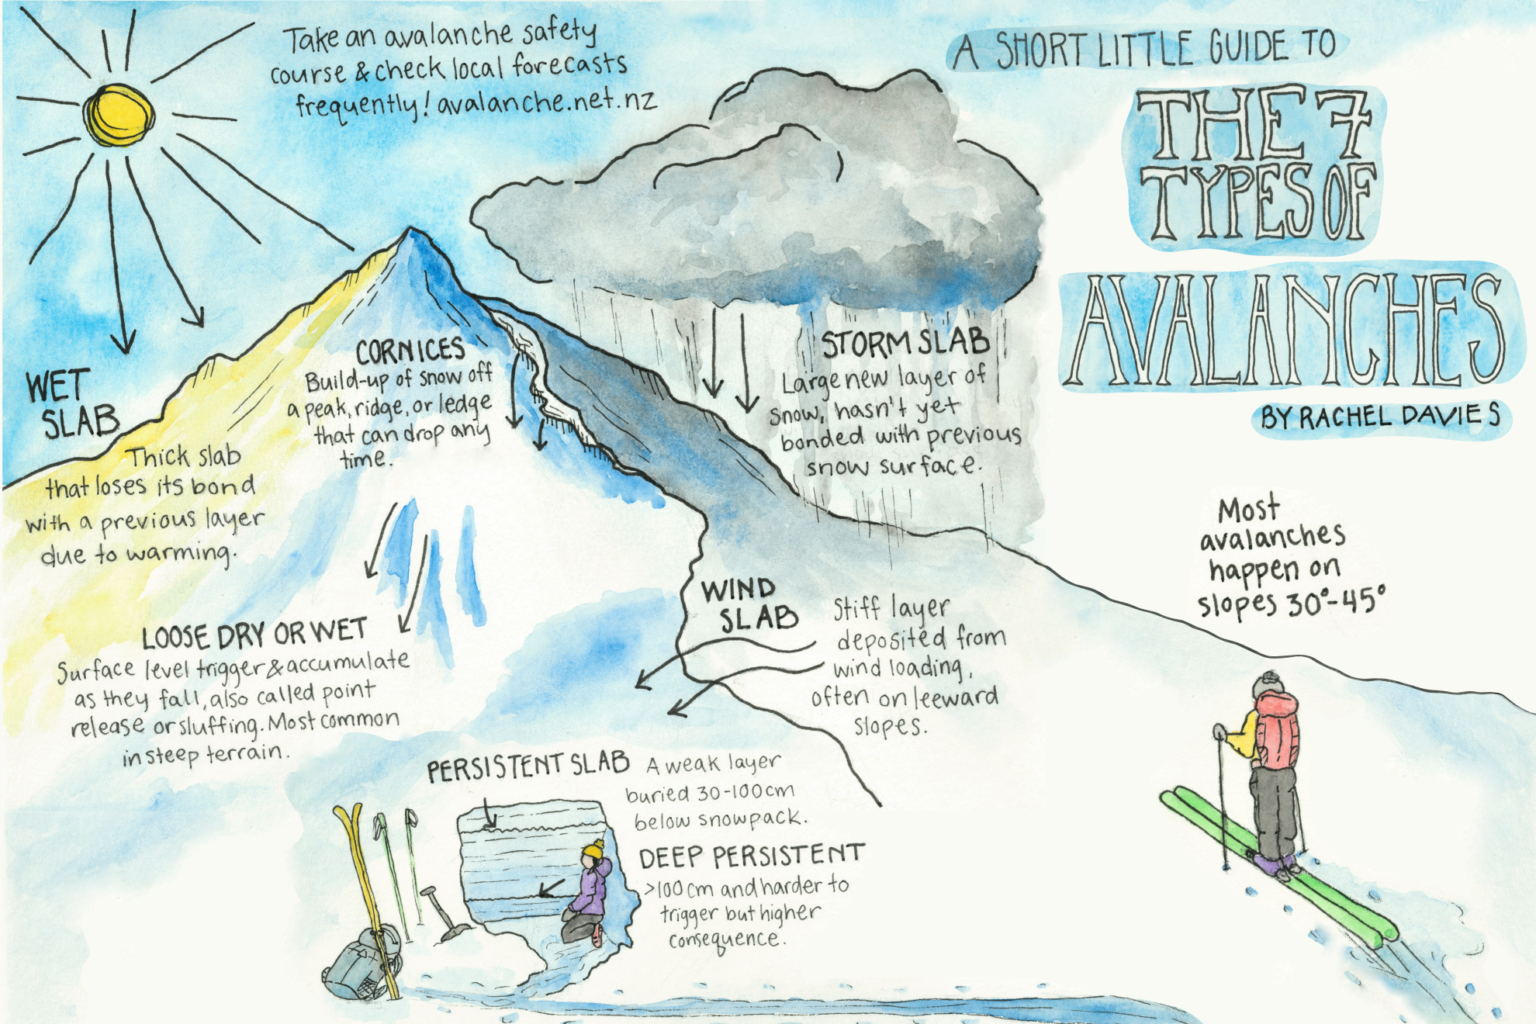 Take an avalanche safety
course & check local forecasts
frequently! avalanche.net.nz
A SHORT LITTLE GUIDE TO
THE 7
TYPES OF
AVALANCHES
BY RACHEL DAVIES
WET
SLAB
Thick slab
that loses its bond
with a previous layer
due to warming.
CORNICES
Build-up of snow off
a peak, ridge, or ledge
that can drop any
time.
STORM SLAB
Large new layer of
snow, hasn't yet
bonded with previous
snow surface.
Most
avalanches
happen on
slopes 30°-45°
LOOSE DRY OR WET
Surface level trigger & accumulate
as they fall, also called point
release or sluffing. Most common
in steep terrain.
WIND
SLAB
Stiff layer
deposited from
wind loading,
often on leeward
slopes.
PERSISTENT SLAB
A weak layer
buried 30-100cm
below snowpack.
DEEP PERSISTENT
>100cm and harder to
trigger but higher
consequence.